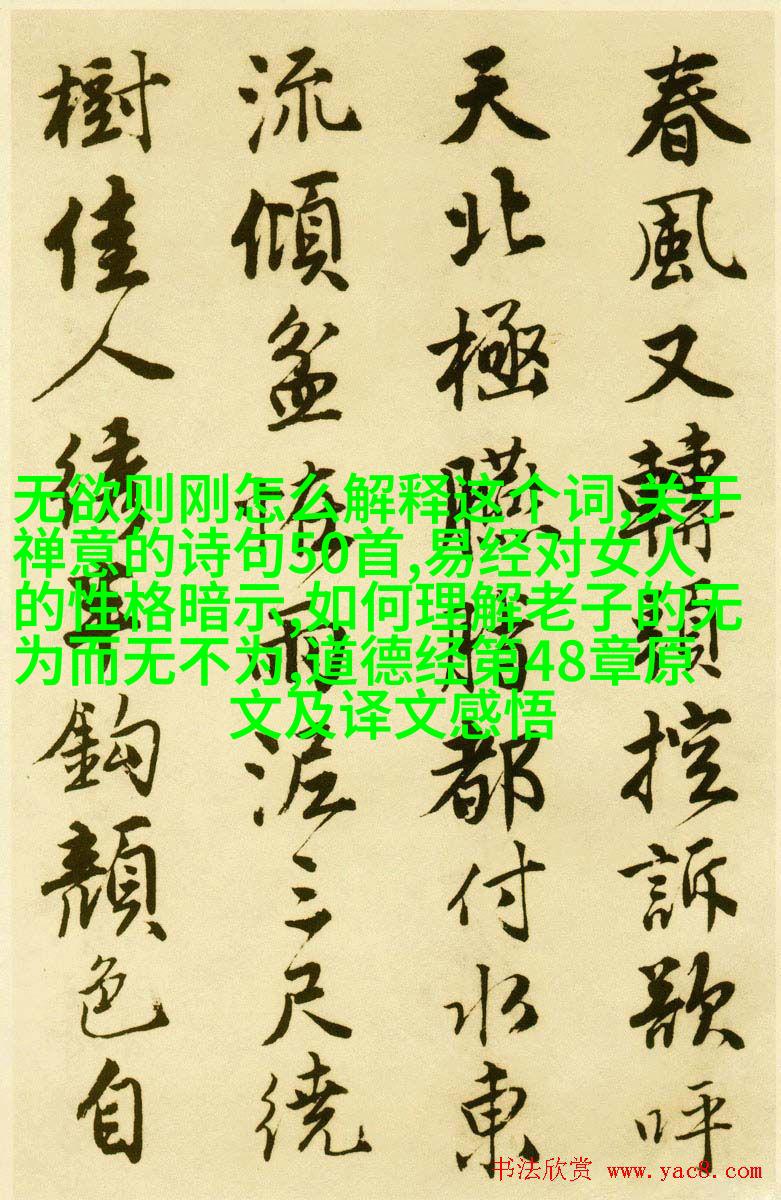 春風又轉控訴欲呼
天北極臙脂都付水東
流傾盆雨泥三尺繞
樹佳人繡半鈎顏色自
无欲则刚怎么解释这个词,关于
禅意的诗句50首,易经对女人
的性格暗示,如何理解老子的无
为而无不为,道德经第48章原
文及译文感悟
书法欣赏 www.yac8.com